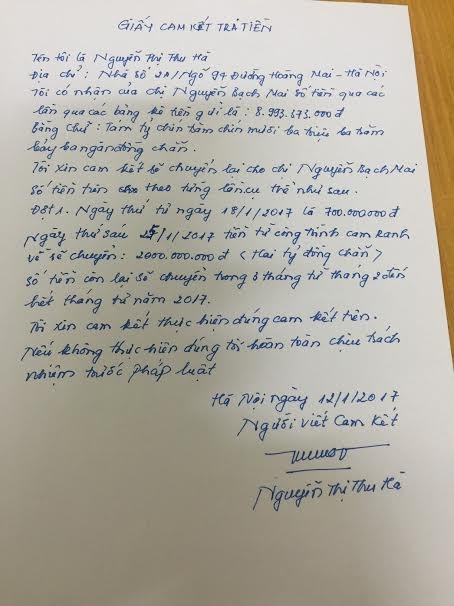 GIẤY CAM KẾT TRẢ TIỀN
Tên tôi là Nguyễn Thị Thu Hà
Địa chỉ: Nhà số 2A/Ngõ 94 Đường Hoàng Mai - Hà Nội
Tôi có nhận của chị Nguyễn Bạch Mai số tiền qua các
lần qua các bảng kê tiền gửi là: 8.993.373.000đ
Bằng chữ: Tám tỷ chín trăm chín mươi ba triệu ba trăm
bảy ba ngàn đồng chẵn.
Tôi xin cam kết sẽ chuyển lại cho chị Nguyễn Bạch Mai
Số tiền trên cho theo từng lần cụ thể như sau.
Đợt 1. Ngày thứ tư ngày 18/1/2017 là 700.000.000đ
Ngày thứ sáu /1/2017 tiền từ công trình cam Ranh
về sẽ chuyển: 2000.000.000đ <Hai tỷ đồng chẵn>
số tiền còn lại sẽ chuyển trong 3 tháng từ tháng 2 đến
hết tháng tư năm 2017.
Tôi xin cam kết thực hiện đúng cam kết trên.
Nếu không thực hiện đúng tôi hoàn toàn chịu trách
nhiệm trước Pháp luật
Hà Nội ngày 12/1/2017
Người viết Cam Kết
Nguyễn Thị Thu Hà